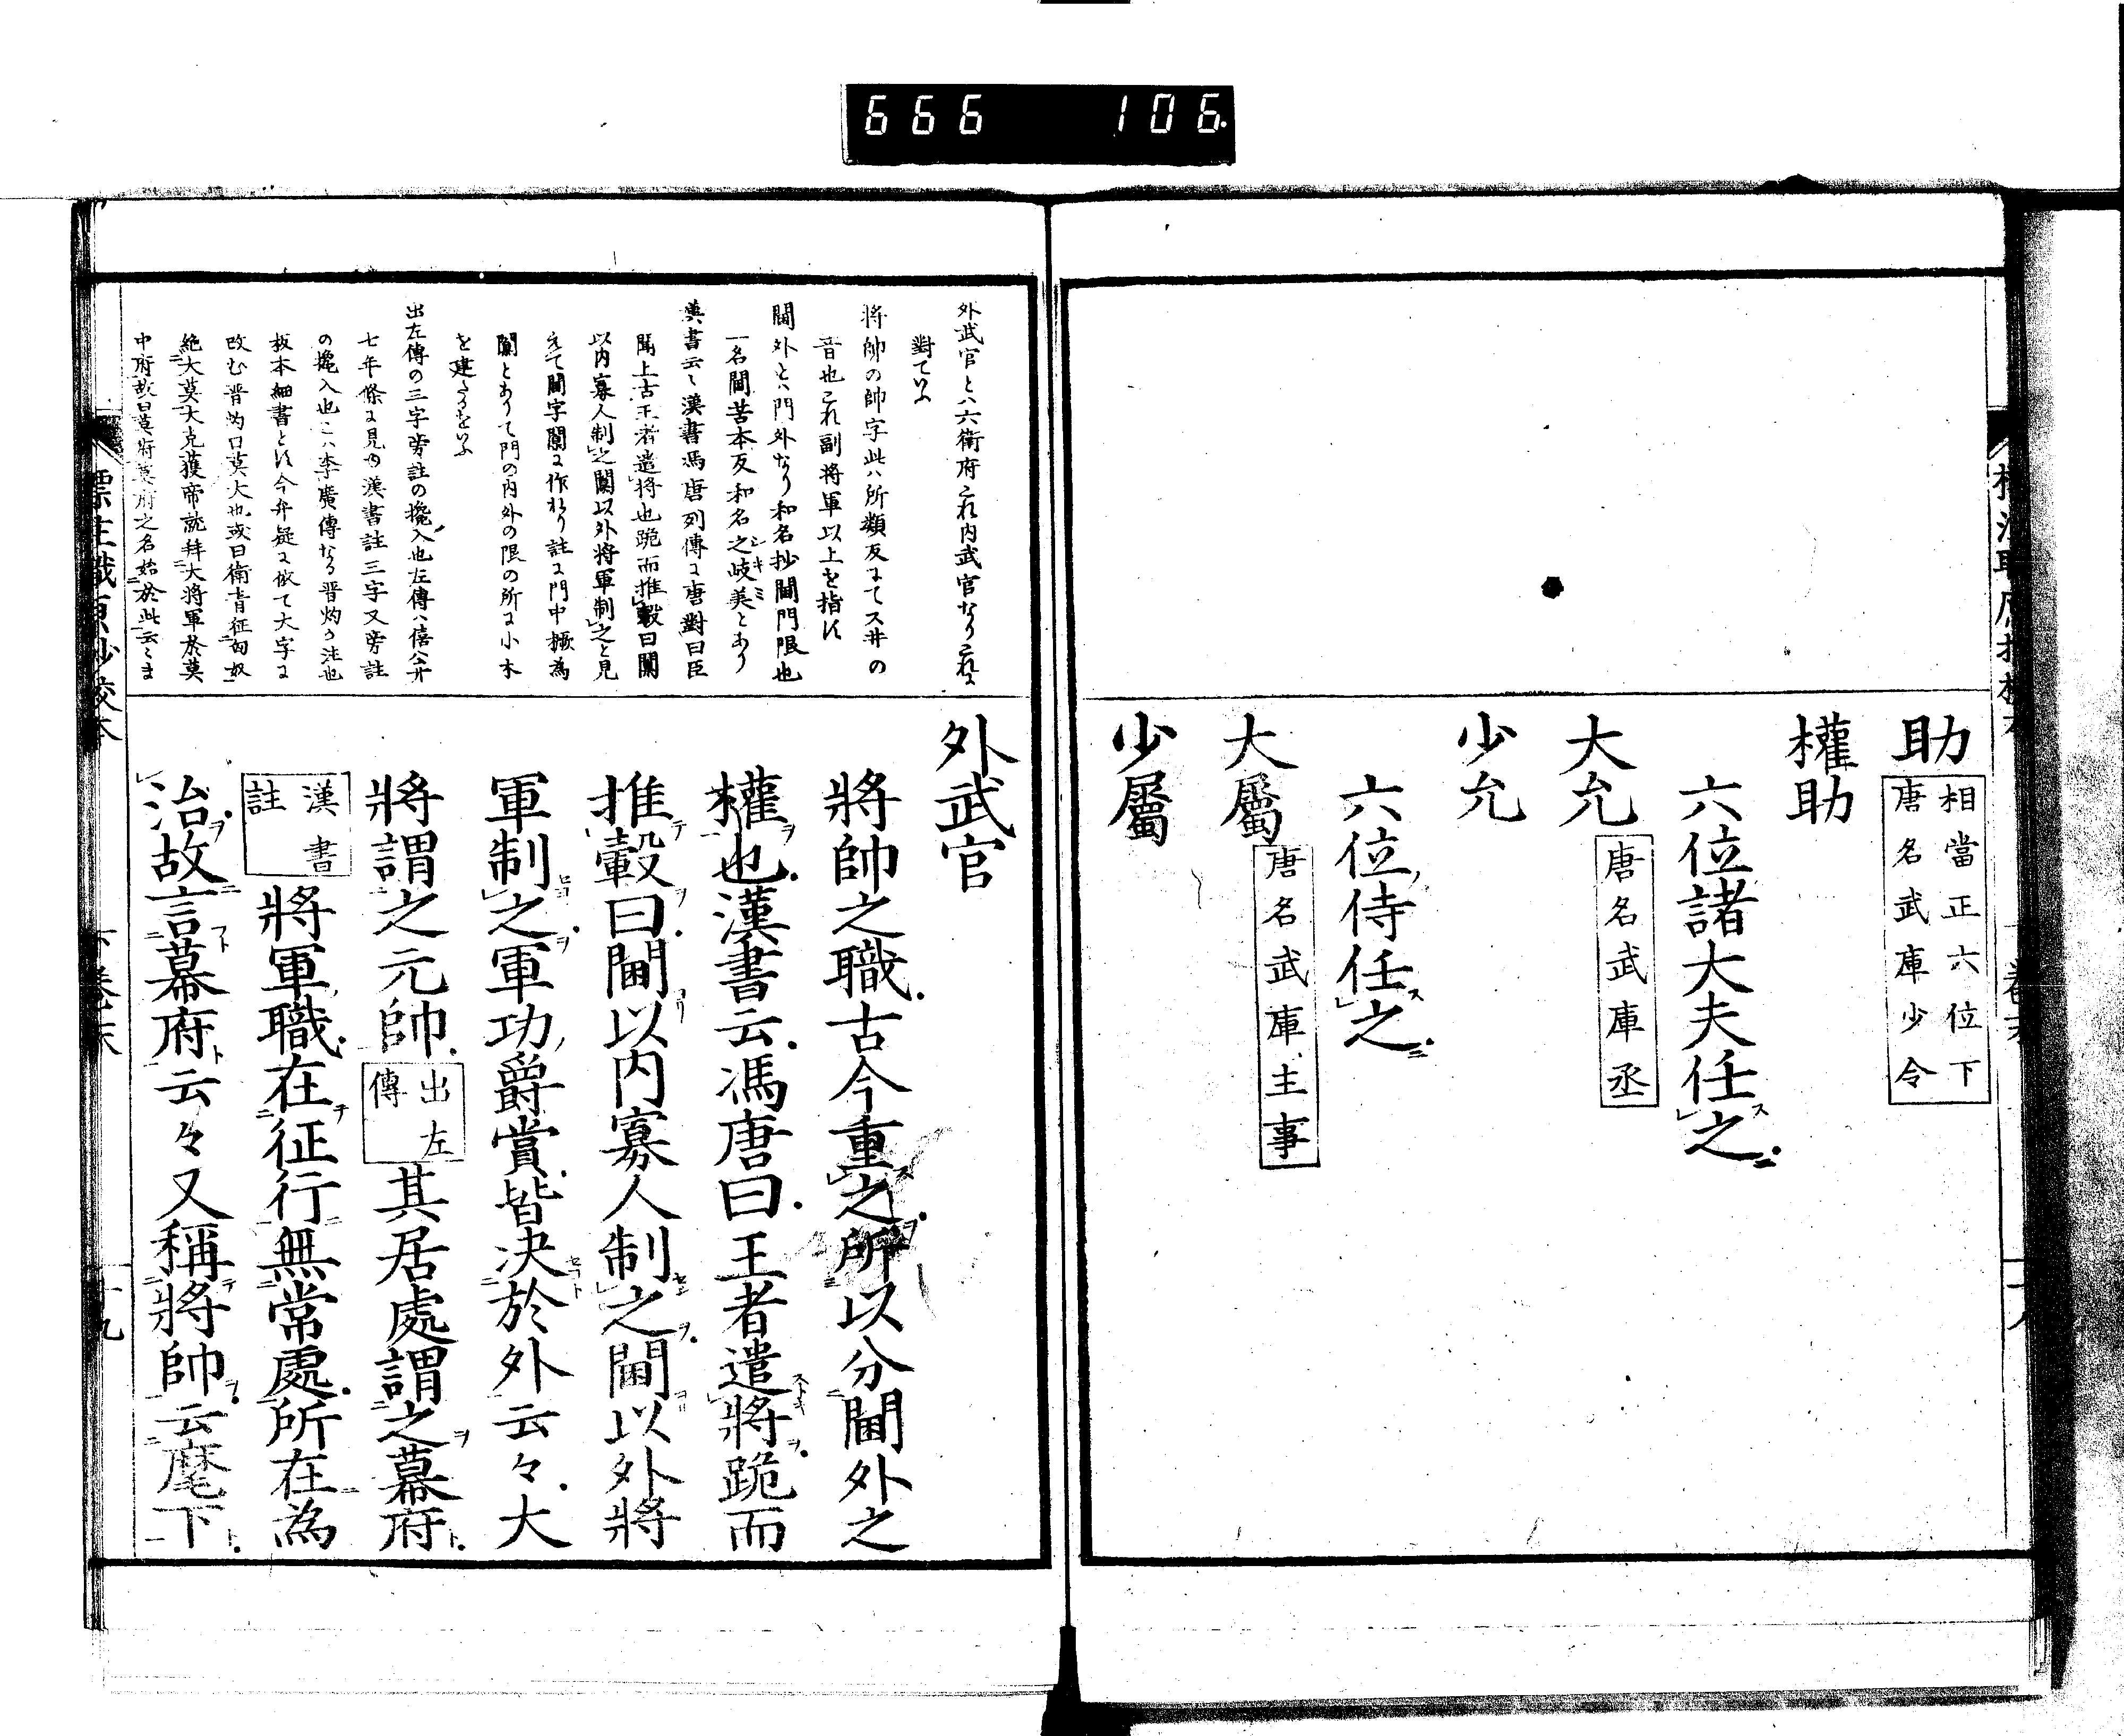 666 106.
助 相當正六位下
唐名武庫少令
權助
六位諸大夫任之
大允 唐名武庫丞
少允
六位侍任之
大屬 唐名武庫主事
少屬
外武官とハ六衛府これ内武官なりこれに
對ていふ
將帥の帥字此ハ所類反にてスヰの
音也これ副将軍以上を指す
閫外とハ門外なり和名抄閫門限也
一名閾苦本反和名之岐美とあり
漢書云〻漢書馮唐列傳に唐對曰臣
聞上古王者遣將也跪而推轂曰闑
以内寡人制之闑以外将軍制之と見
えて閫字闑に作れり註に門中橛為
闑とありて門の内外の限の所に小木
を建たるをいふ
出左傳の三字旁註の攙入也左傳ハ僖公廿
七年條に見ゆ漢書註三字又旁註
の攙入也こハ李廣傳なる晋灼の注也
板本細書とす今弁疑に依て大字に
改む晋灼曰莫大也或曰衛青征匈奴
絶大莫大克獲帝就拜大将軍於莫
中府故曰莫府莫府之名始於此云〻ま
外武官
將帥之職古今重之所以分閫外之
權也漢書云馮唐曰王者遣將跪而
推轂曰閫以内寡人制之閫以外將
軍制之軍功爵賞皆决於外云々大
將謂之元帥 出左傳 其居處謂之幕府
漢書註 將軍職在征行無常處所在為
治故言幕府云々又稱將帥云麾下
標注職原抄校本
下卷末
十九